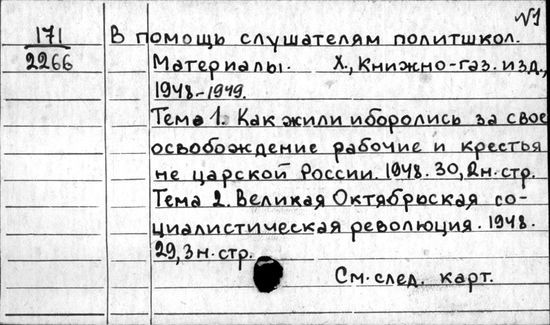 №1
171 В помощь слушателям политшкол.
2266 Материалы. Х., Книжно-газ. изд.,
1948-1949.
Тема 1. Как жили и боролись за свое
освобождение рабочие и крестья
не царской России. 1948. 30, 2н. стр.
Тема 2. Великая Октябрьская со-
циалистическая революция. 1948.
29, 3н. стр.
См. след. карт.